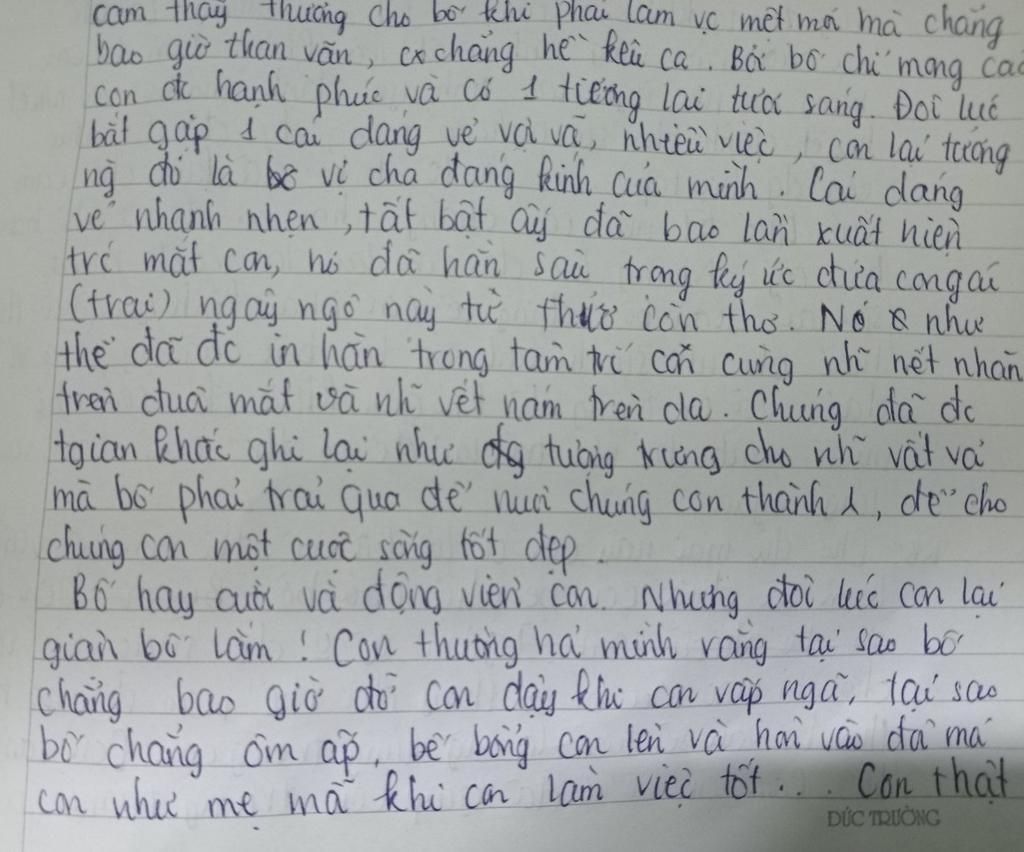 cảm thấy thương cho bố khi phải làm vc mệt mỏi mà chẳng
bao giờ than vãn, cx chẳng hề kêu ca. Bởi bố chỉ mong các
con đc hạnh phúc và có 1 tương lai tươi sáng. Đôi lúc
bắt gặp 1 cái dáng vẻ vội vã, nhiều việc, con lại tưởng
ng đó là vị cha đáng kính của mình. Cái dáng
vẻ nhanh nhẹn, tất bật ấy đã bao lần xuất hiện
trc mắt con, nó đã hằn sâu trong ký ức đứa con gái
(trai) ngây ngô này từ thưở còn thơ. Nó như
thế đã đc in hằn trong tâm trí con cùng nh~ nết nhăn
trên đuôi mắt và nh~ vết nám trên da. Chúng đã đc
tgian khắc ghi lại như tượng trưng cho nh~ vất vả
mà bố phải trải qua để nuôi chúng con thành λ, để cho
chúng con một cuộc sống tốt đẹp.
Bố hay cười và động viên con. Nhưng đôi lúc con lại
giận bố lắm! Con thường hỏi mình rằng tại sao bố
chẳng bao giờ đỡ con dậy khi con vấp ngã, tại sao
bố chẳng ôm ấp, bế bồng con lên và hôn vào đôi má
con như mẹ mà khi con làm việc tốt... Con thật
ĐỨC TRƯỜNG